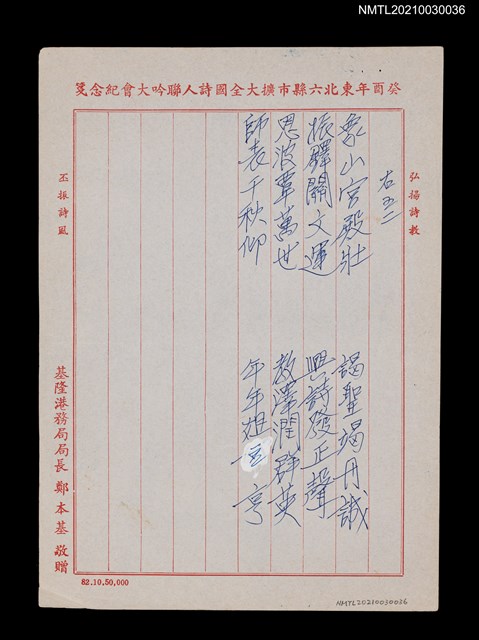 NMTL20210030036
癸酉年東北六縣市擴大全國詩人聯吟大會紀念箋
弘揚詩教
右五二
象山宮殿壯 謁聖竭丹誠
振鐸開文運 興詩發正聲
恩波覃萬世 教澤潤群英
師表千秋仰 年年俎豆亨
丕振詩風
基隆港務局局長 鄭本基 敬贈
82.10.50,000
NMTL20210030036